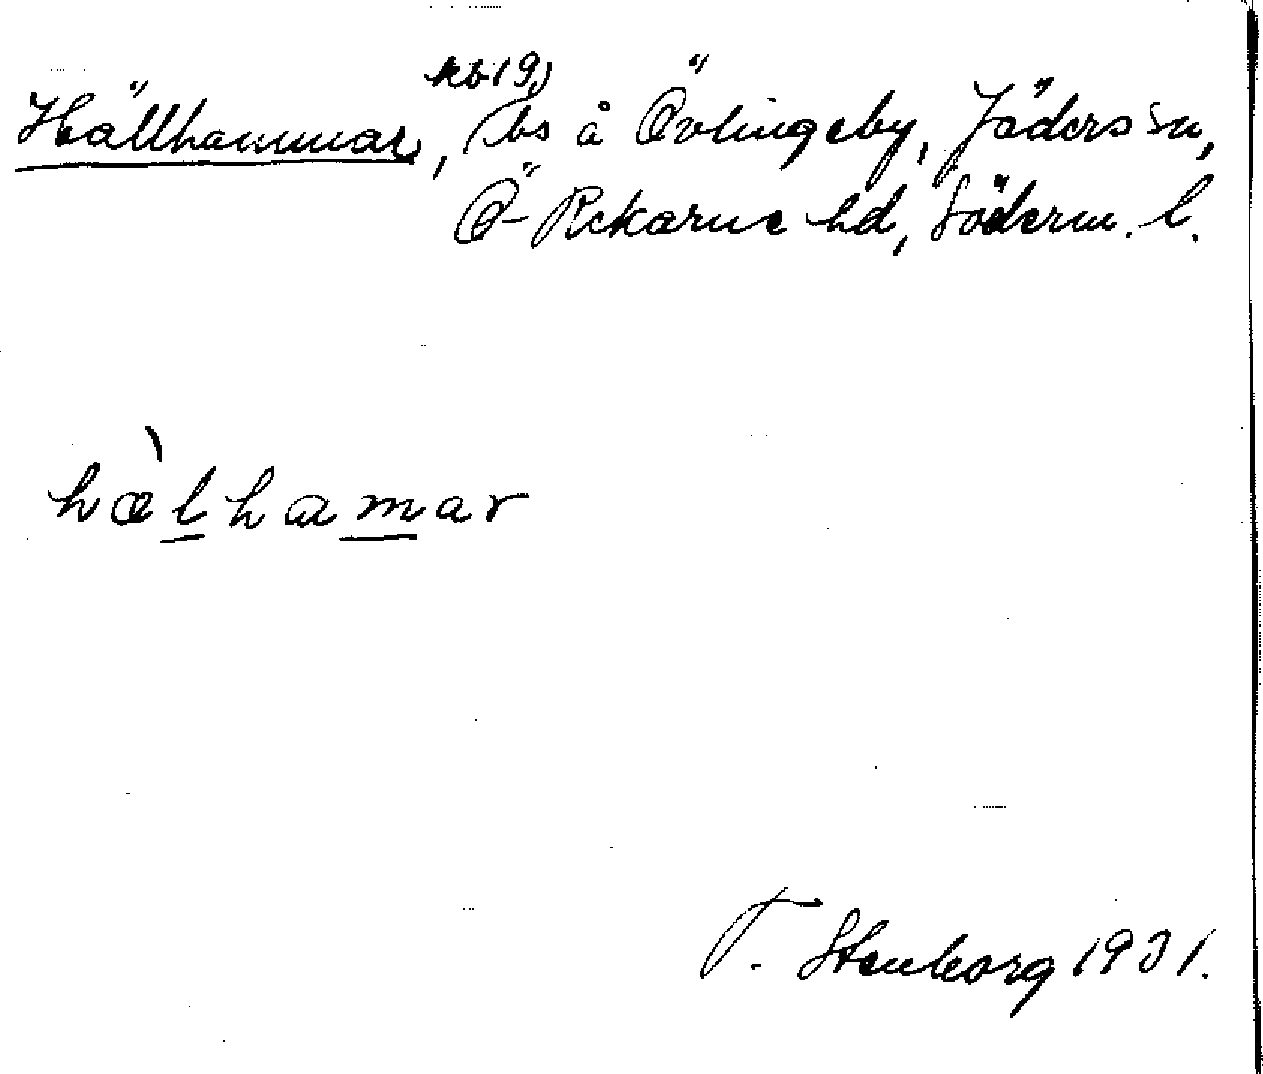 kb 19)
Hällhammar, (bs å Övlingeby, Jäders sn,
Ö-Rekarne hd, Söderm. l.
hæ̀lhamar
T. Stenborg 1931.